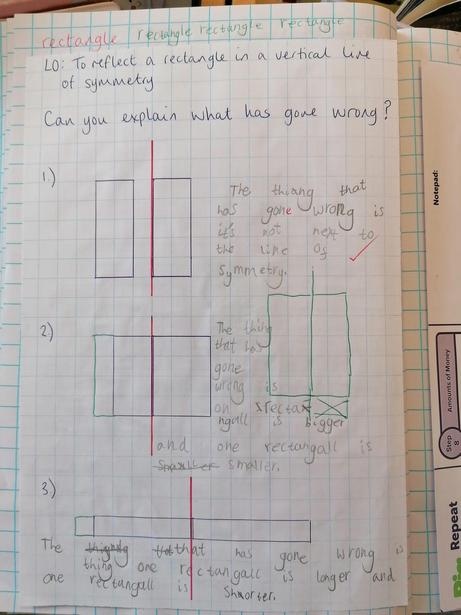 rectangle rectangle rectangle rectangle
LO: To reflect a rectangle in a vertical line
of symmetry
Can you explain what has gone wrong?
1.)
The thiang that
has gone wrong is
it's not next to
the line of
symmetry.
2)
The thing
that has
gone
wrong is
on rectax
ngall is bigger
and one rectangall is
smaller.
3)
The that has gone wrong is
thing one rectangall is longer and
one rectangall is Shorter.
Notepad:
Step 8
Amounts of Money
Repeat